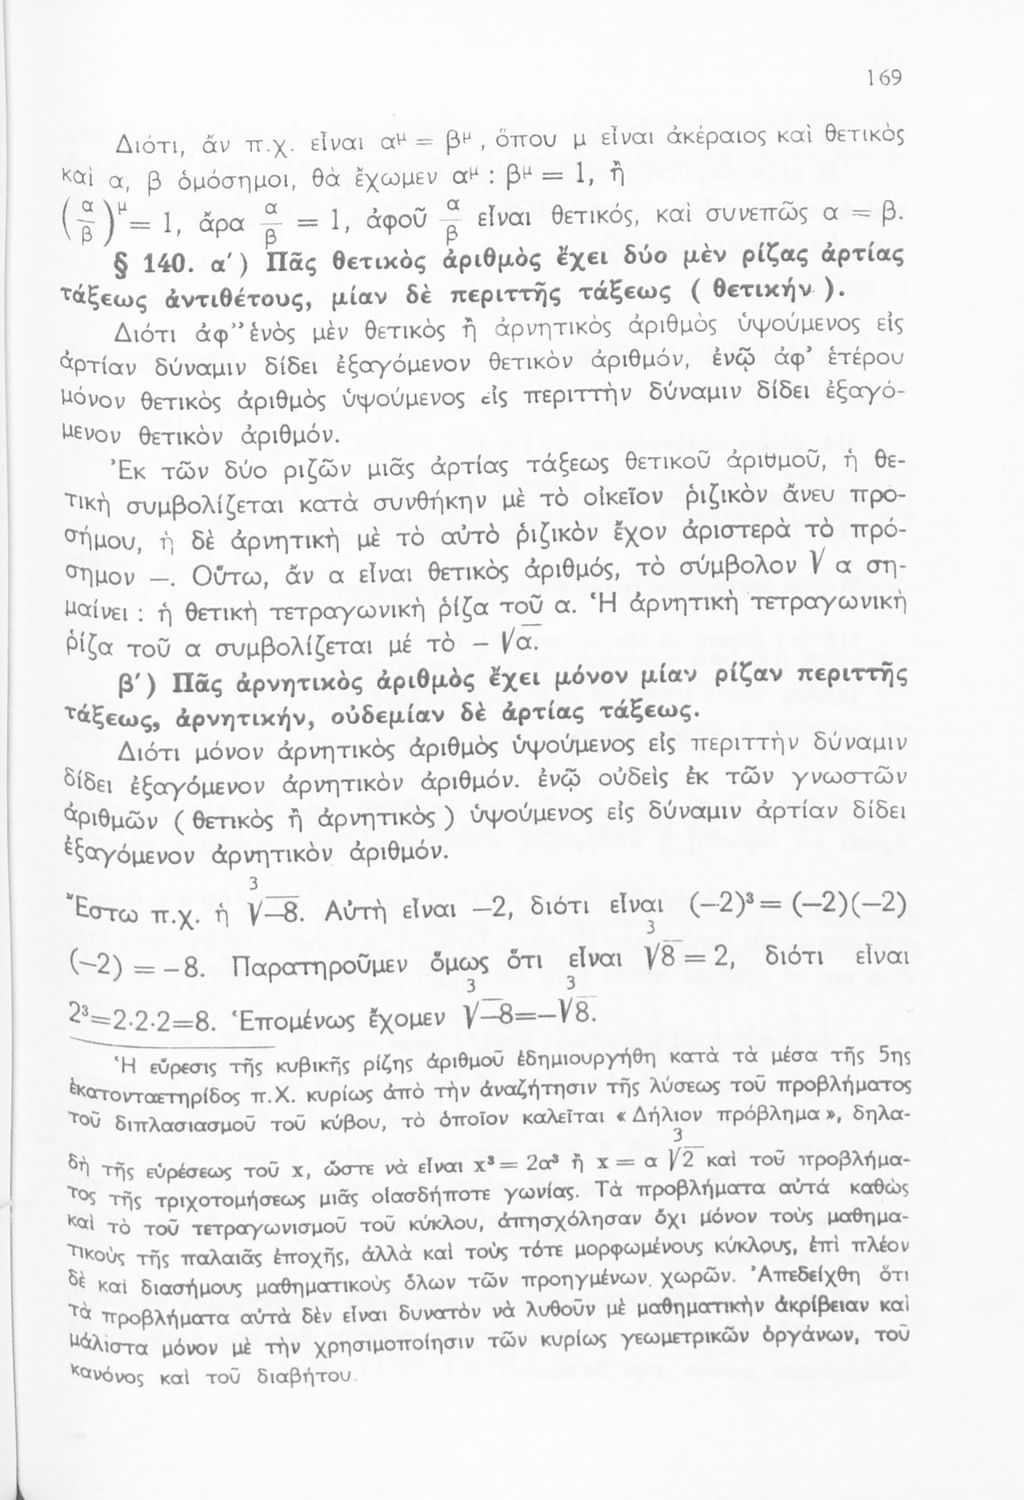 169
Διότι, ἂν π.χ. εἶναι αᵘ = βᵘ, ὅπου μ εἶναι ἀκέραιος καὶ θετικὸς
καὶ α, β ὁμόσημοι, θὰ ἔχωμεν αᵘ : βᵘ = 1, ἢ
(α/β)ᵘ = 1, ἄρα α/β = 1, ἀφοῦ α/β εἶναι θετικός, καὶ συνεπῶς α = β.
§ 140. α΄) Πᾶς θετικὸς ἀριθμὸς ἔχει δύο μὲν ρίζας ἀρτίας
τάξεως ἀντιθέτους, μίαν δὲ περιττῆς τάξεως ( θετικήν ).
Διότι ἀφ'' ἑνὸς μὲν θετικὸς ἢ ἀρνητικὸς ἀριθμὸς ὑψούμενος εἰς
ἀρτίαν δύναμιν δίδει ἐξαγόμενον θετικὸν ἀριθμόν, ἐνῷ ἀφ' ἑτέρου
μόνον θετικὸς ἀριθμὸς ὑψούμενος εἰς περιττὴν δύναμιν δίδει ἐξαγό-
μενον θετικὸν ἀριθμόν.
Ἐκ τῶν δύο ριζῶν μιᾶς ἀρτίας τάξεως θετικοῦ ἀριθμοῦ, ἡ θε-
τικὴ συμβολίζεται κατὰ συνθήκην μὲ τὸ οἰκεῖον ῥιζικὸν ἄνευ προ-
σήμου, ἡ δὲ ἀρνητικὴ μὲ τὸ αὐτὸ ῥιζικὸν ἔχον ἀριστερὰ τὸ πρό-
σημον —. Οὕτω, ἂν α εἶναι θετικὸς ἀριθμός, τὸ σύμβολον √α ση-
μαίνει : ἡ θετικὴ τετραγωνικὴ ῥίζα τοῦ α. Ἡ ἀρνητικὴ τετραγωνικὴ
ῥίζα τοῦ α συμβολίζεται μέ τὸ – √α.
β΄) Πᾶς ἀρνητικὸς ἀριθμὸς ἔχει μόνον μίαν ρίζαν περιττῆς
τάξεως, ἀρνητικήν, οὐδεμίαν δὲ ἀρτίας τάξεως.
Διότι μόνον ἀρνητικὸς ἀριθμὸς ὑψούμενος εἰς περιττὴν δύναμιν
δίδει ἐξαγόμενον ἀρνητικὸν ἀριθμόν. ἐνῷ οὐδεὶς ἐκ τῶν γνωστῶν
ἀριθμῶν ( θετικὸς ἢ ἀρνητικὸς ) ὑψούμενος εἰς δύναμιν ἀρτίαν δίδει
ἐξαγόμενον ἀρνητικὸν ἀριθμόν.
Ἔστω π.χ. ἡ ∛–8. Αὐτὴ εἶναι –2, διότι εἶναι (–2)³ = (–2)(–2)
(–2) = –8. Παρατηροῦμεν ὅμως ὅτι εἶναι ∛8 = 2, διότι εἶναι
2³=2·2·2=8. Ἑπομένως ἔχομεν ∛–8=–∛8.
Ἡ εὕρεσις τῆς κυβικῆς ρίζης ἀριθμοῦ ἐδημιουργήθη κατὰ τὰ μέσα τῆς 5ης
ἑκατονταετηρίδος π.Χ. κυρίως ἀπὸ τὴν ἀναζήτησιν τῆς λύσεως τοῦ προβλήματος
τοῦ διπλασιασμοῦ τοῦ κύβου, τὸ ὁποῖον καλεῖται « Δήλιον πρόβλημα », δηλα-
δὴ τῆς εὑρέσεως τοῦ x, ὥστε νὰ εἶναι x³ = 2α³ ἢ x = α ∛2 καὶ τοῦ προβλήμα-
τος τῆς τριχοτομήσεως μιᾶς οἱασδήποτε γωνίας. Τὰ προβλήματα αὐτά καθὼς
καὶ τὸ τοῦ τετραγωνισμοῦ τοῦ κύκλου, ἀπησχόλησαν ὄχι μόνον τοὺς μαθημα-
τικοὺς τῆς παλαιᾶς ἐποχῆς, ἀλλὰ καὶ τοὺς τότε μορφωμένους κύκλους, ἐπὶ πλέον
δὲ καὶ διασήμους μαθηματικοὺς ὅλων τῶν προηγμένων χωρῶν. Ἀπεδείχθη ὅτι
τὰ προβλήματα αὐτὰ δὲν εἶναι δυνατὸν νὰ λυθοῦν μὲ μαθηματικὴν ἀκρίβειαν καὶ
μάλιστα μόνον μὲ τὴν χρησιμοποίησιν τῶν κυρίως γεωμετρικῶν ὀργάνων, τοῦ
κανόνος καὶ τοῦ διαβήτου.